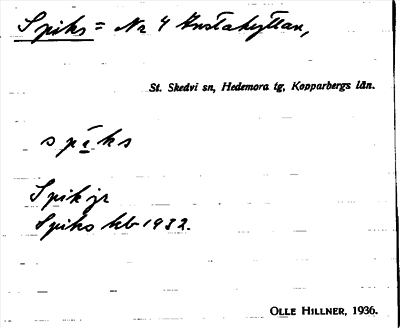 Spiks = Nr 4 Gustahyttan,
St. Skedvi sn, Hedemora tg, Kopparbergs län.
spi̱ks
Spik jr
Spiks kb 1932.
OLLE HILLNER, 1936.